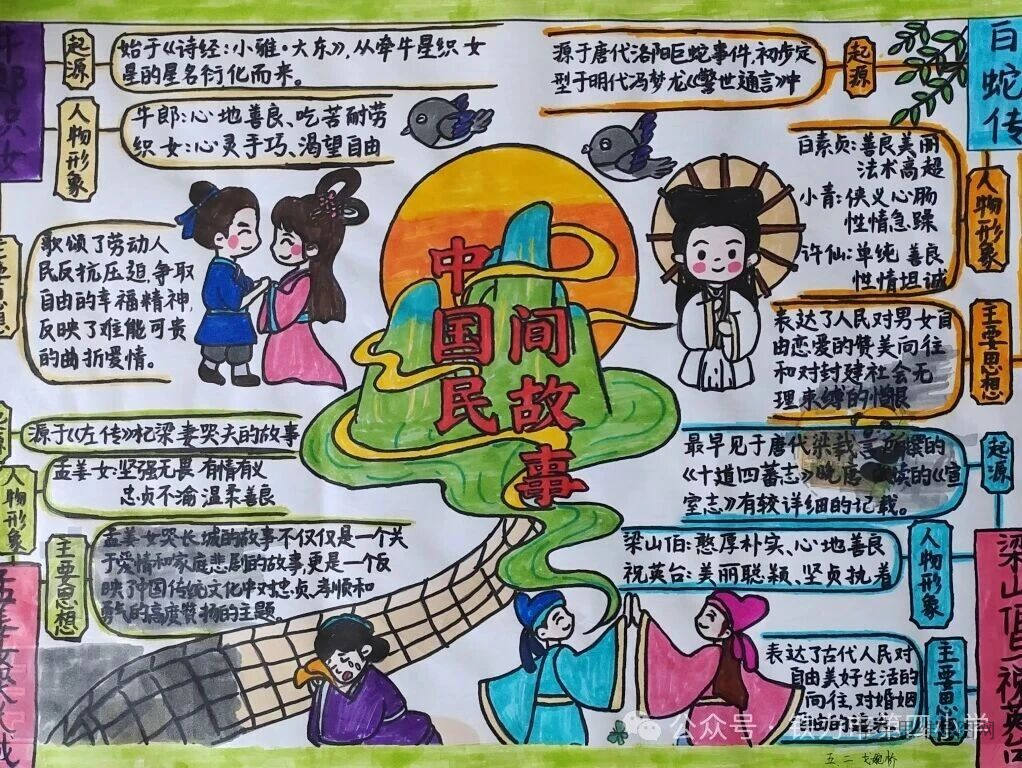 中国民
间故事
牛郎织女
起源
始于《诗经:小雅·大东》,从牵牛星织女
星的星名衍化而来。
人物形象
牛郎:心地善良、吃苦耐劳
织女:心灵手巧、渴望自由
歌颂了劳动人
民反抗压迫,争取
自由的幸福精神,
反映了难能可贵
的曲折爱情。
白蛇传
起源
源于唐代洛阳巨蛇事件,初步定
型于明代冯梦龙《警世通言》中
人物形象
白素贞:善良美丽
法术高超
小青:侠义心肠
性情急躁
许仙:单纯 善良
性情坦诚
主要思想
表达了人民对男女自
由恋爱的赞美向往
和对封建社会无
理束缚的憎恨
源于《左传》杞梁妻哭夫的故事
人物形象
孟姜女:坚强无畏 有情有义
忠贞不渝 温柔善良
主要思想
孟姜女哭长城的故事不仅仅是一个关
于爱情和家庭悲剧的故事,更是一个反
映了中国传统文化中对忠贞、孝顺和
勇气的高度赞扬的主题。
梁山伯祝英台
起源
最早见于唐代梁载言所撰的
《十道四蕃志》晚唐 读的《宣
室志》有较详细的记载。
人物形象
梁山伯:憨厚朴实、心地善良
祝英台:美丽聪颖、坚贞执着
主要思想
表达了古代人民对
自由美好生活的
向往,对婚姻
自由的追求
公众号 · 第四小学
五.二